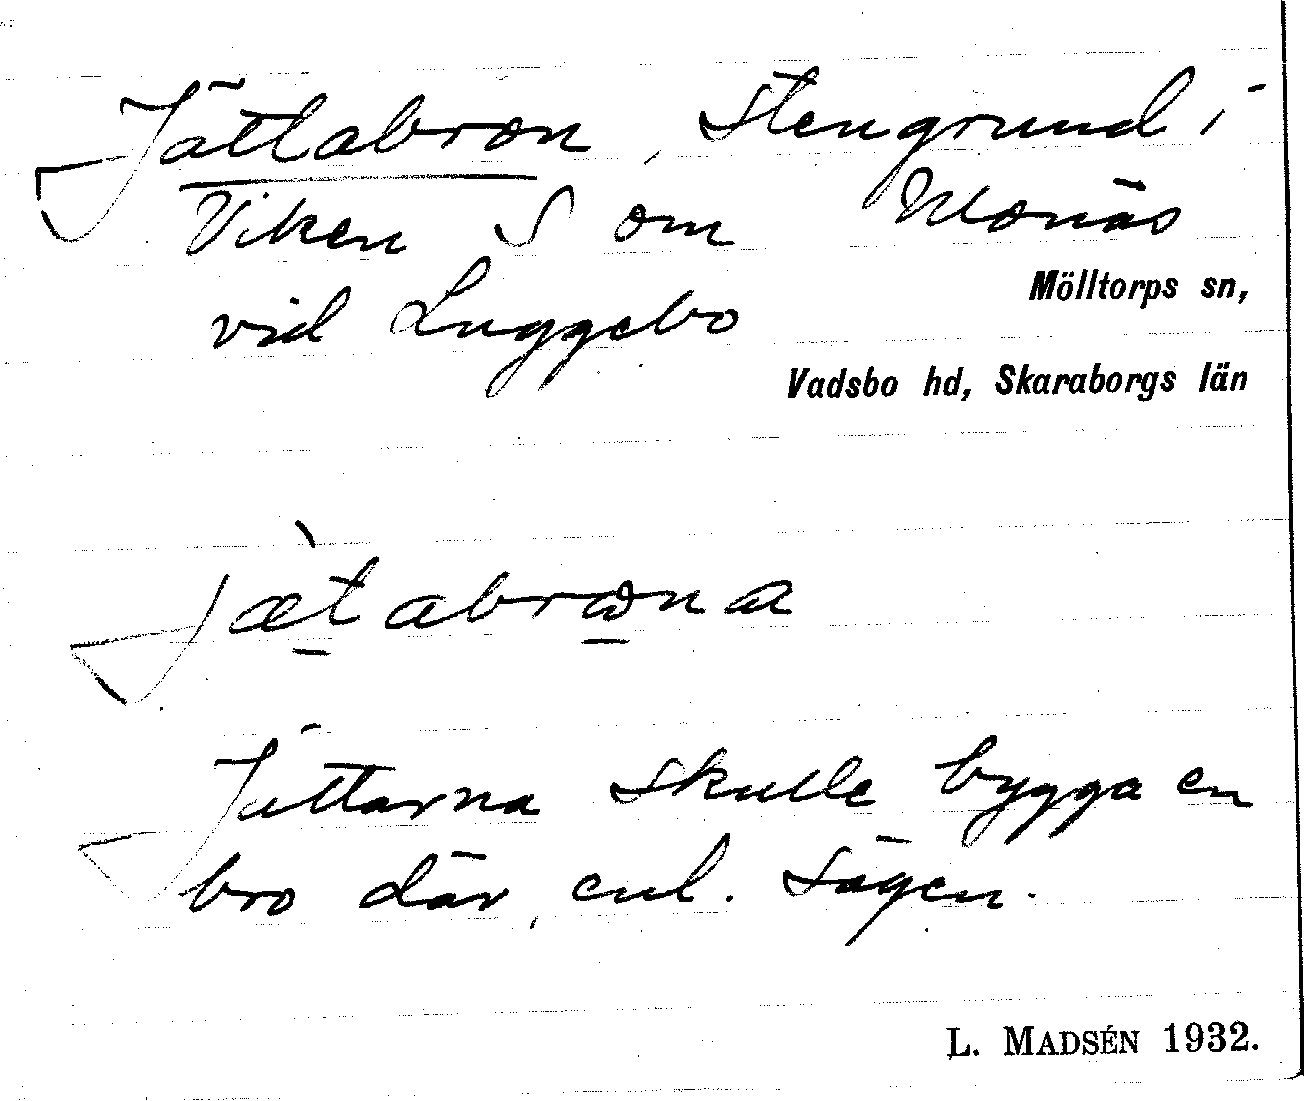 Jättabron, stengrund i
Viken S om Monäs
vid Luggebo
Mölltorps sn,
Vadsbo hd, Skaraborgs län
jæ̀tabrωna
Jättarna skulle bygga en
bro där, enl. sägen.
L. MADSÉN 1932.